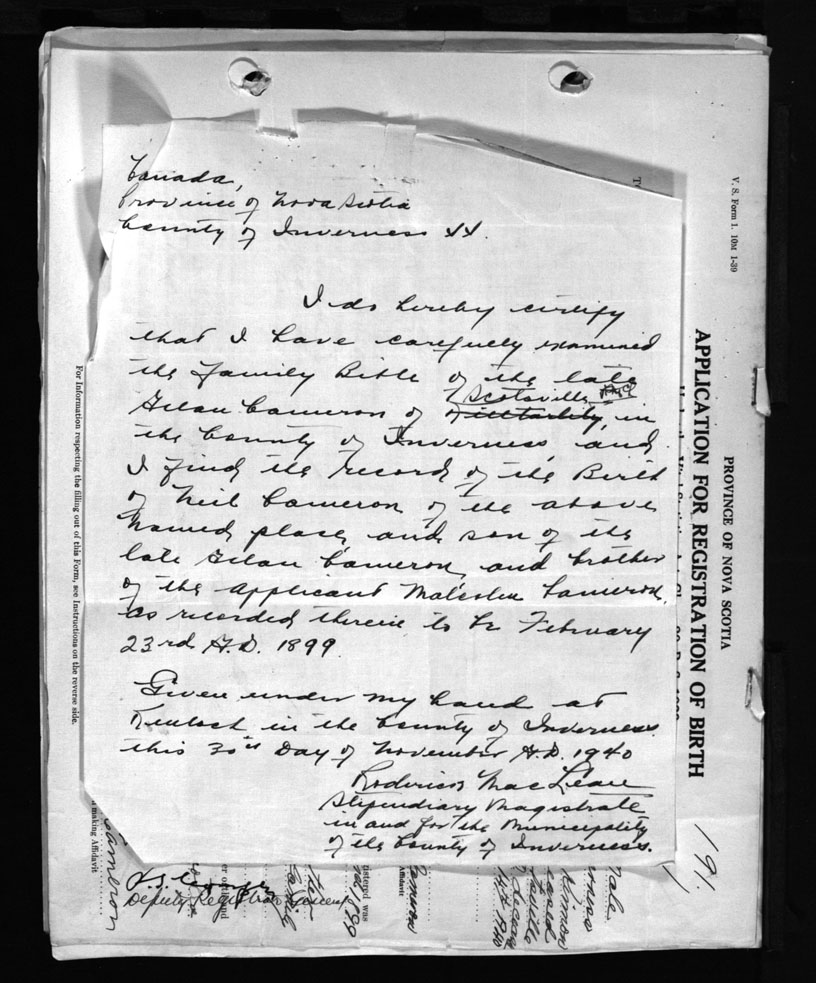 Canada,
Province of Nova Scotia
County of Inverness SS.
I do hereby certify
that I have carefully examined
the Family Bible of the late
Scotsville
Allan Cameron of Killtarlity, in
the County of Inverness, and
I find the record of the Birth
of Neil Cameron of the above
Named place, and son of the
late Allan Cameron, and brother
of the applicant Malcolm Cameron,
as recorded therein to be February
23rd A.D. 1899
Given under my hand at
Kinloch in the County of Inverness
this 30th Day of November A.D. 1940
Roderick MacLean
Stipendiary Magistrate
in and for the Municipality
of the County of Inverness.
Deputy Registrar General
V. S. Form 1. 10M 1-39
PROVINCE OF NOVA SCOTIA
APPLICATION FOR REGISTRATION OF BIRTH
191.
For Information respecting the filling out of this Form, see Instructions on the reverse side.
making Affidavit
Cameron
istered was
Affidavit
Cameron